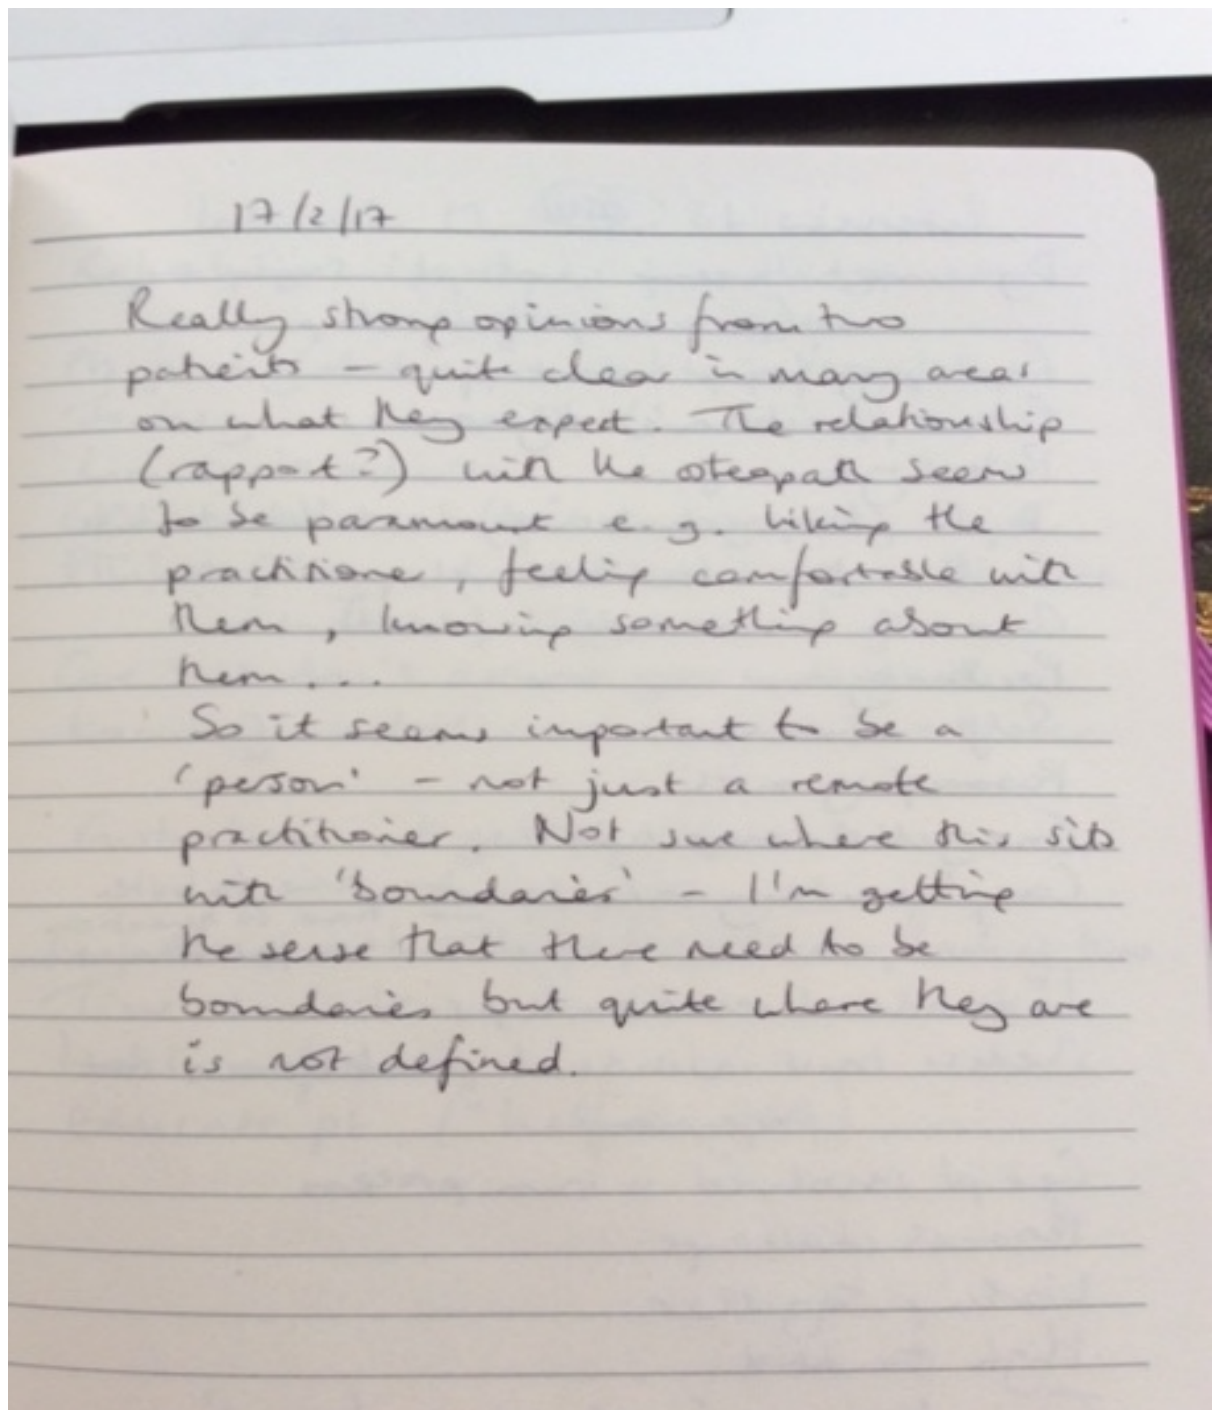 17/2/17
Really strong opinions from two
patients – quite clear in many areas
on what they expect. The relationship
(rapport?) with the osteopath seems
to be paramount e.g. liking the
practitioner, feeling comfortable with
them, knowing something about
them...
So it seems important to be a
'person' – not just a remote
practitioner. Not sure where this sits
with 'boundaries' – I'm getting
the sense that there need to be
boundaries but quite where they are
is not defined.